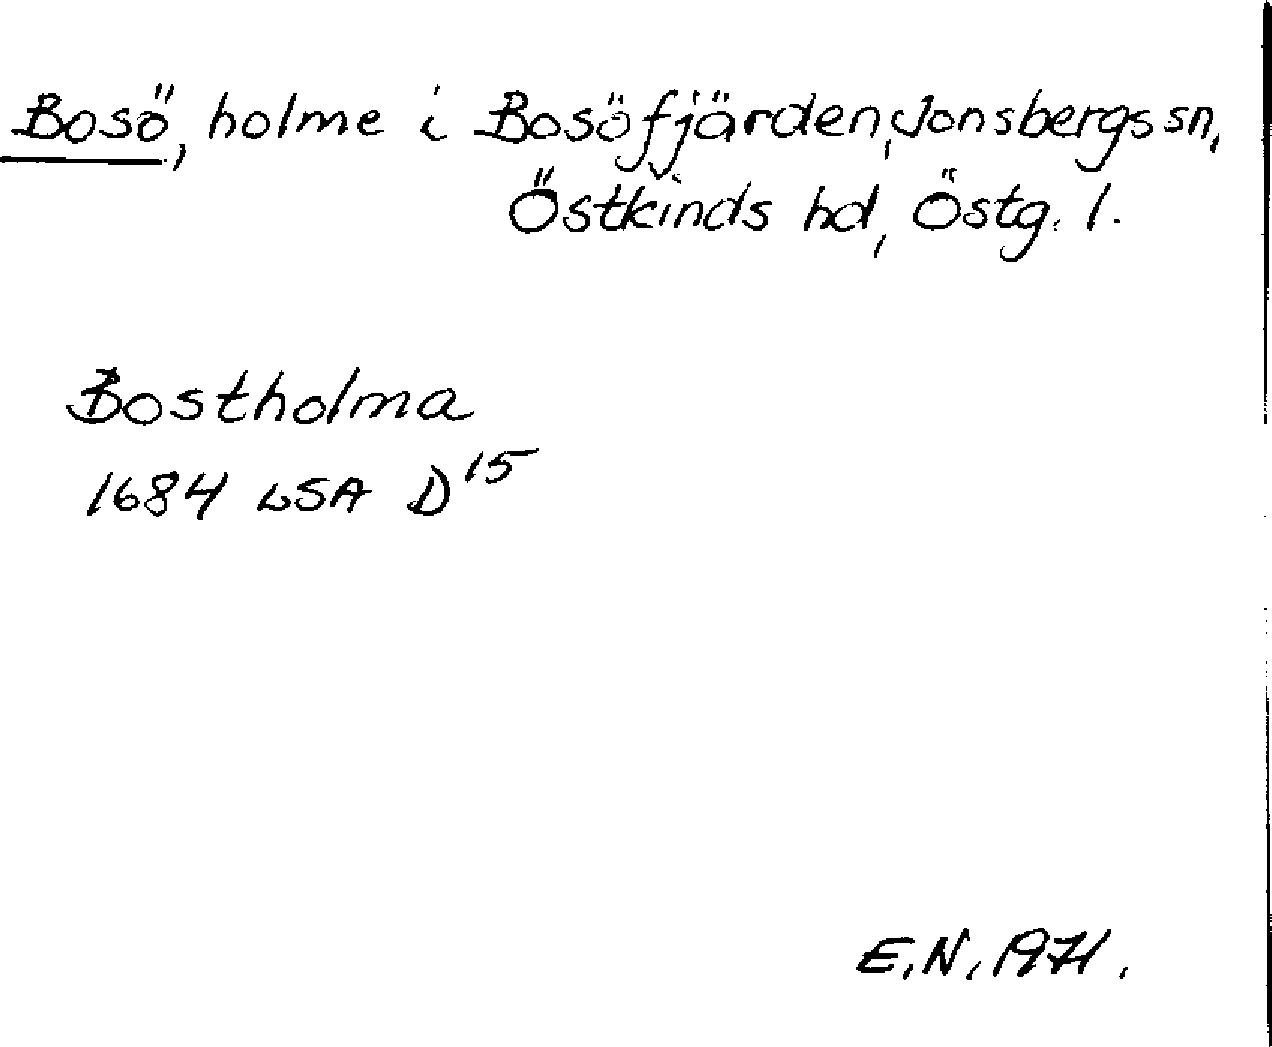 Bosö, holme i Bosöfjärden, Jonsbergs sn,
Östkinds hd, Östg. l.
Bostholma
1684 LSA D15
E.N. 1971.